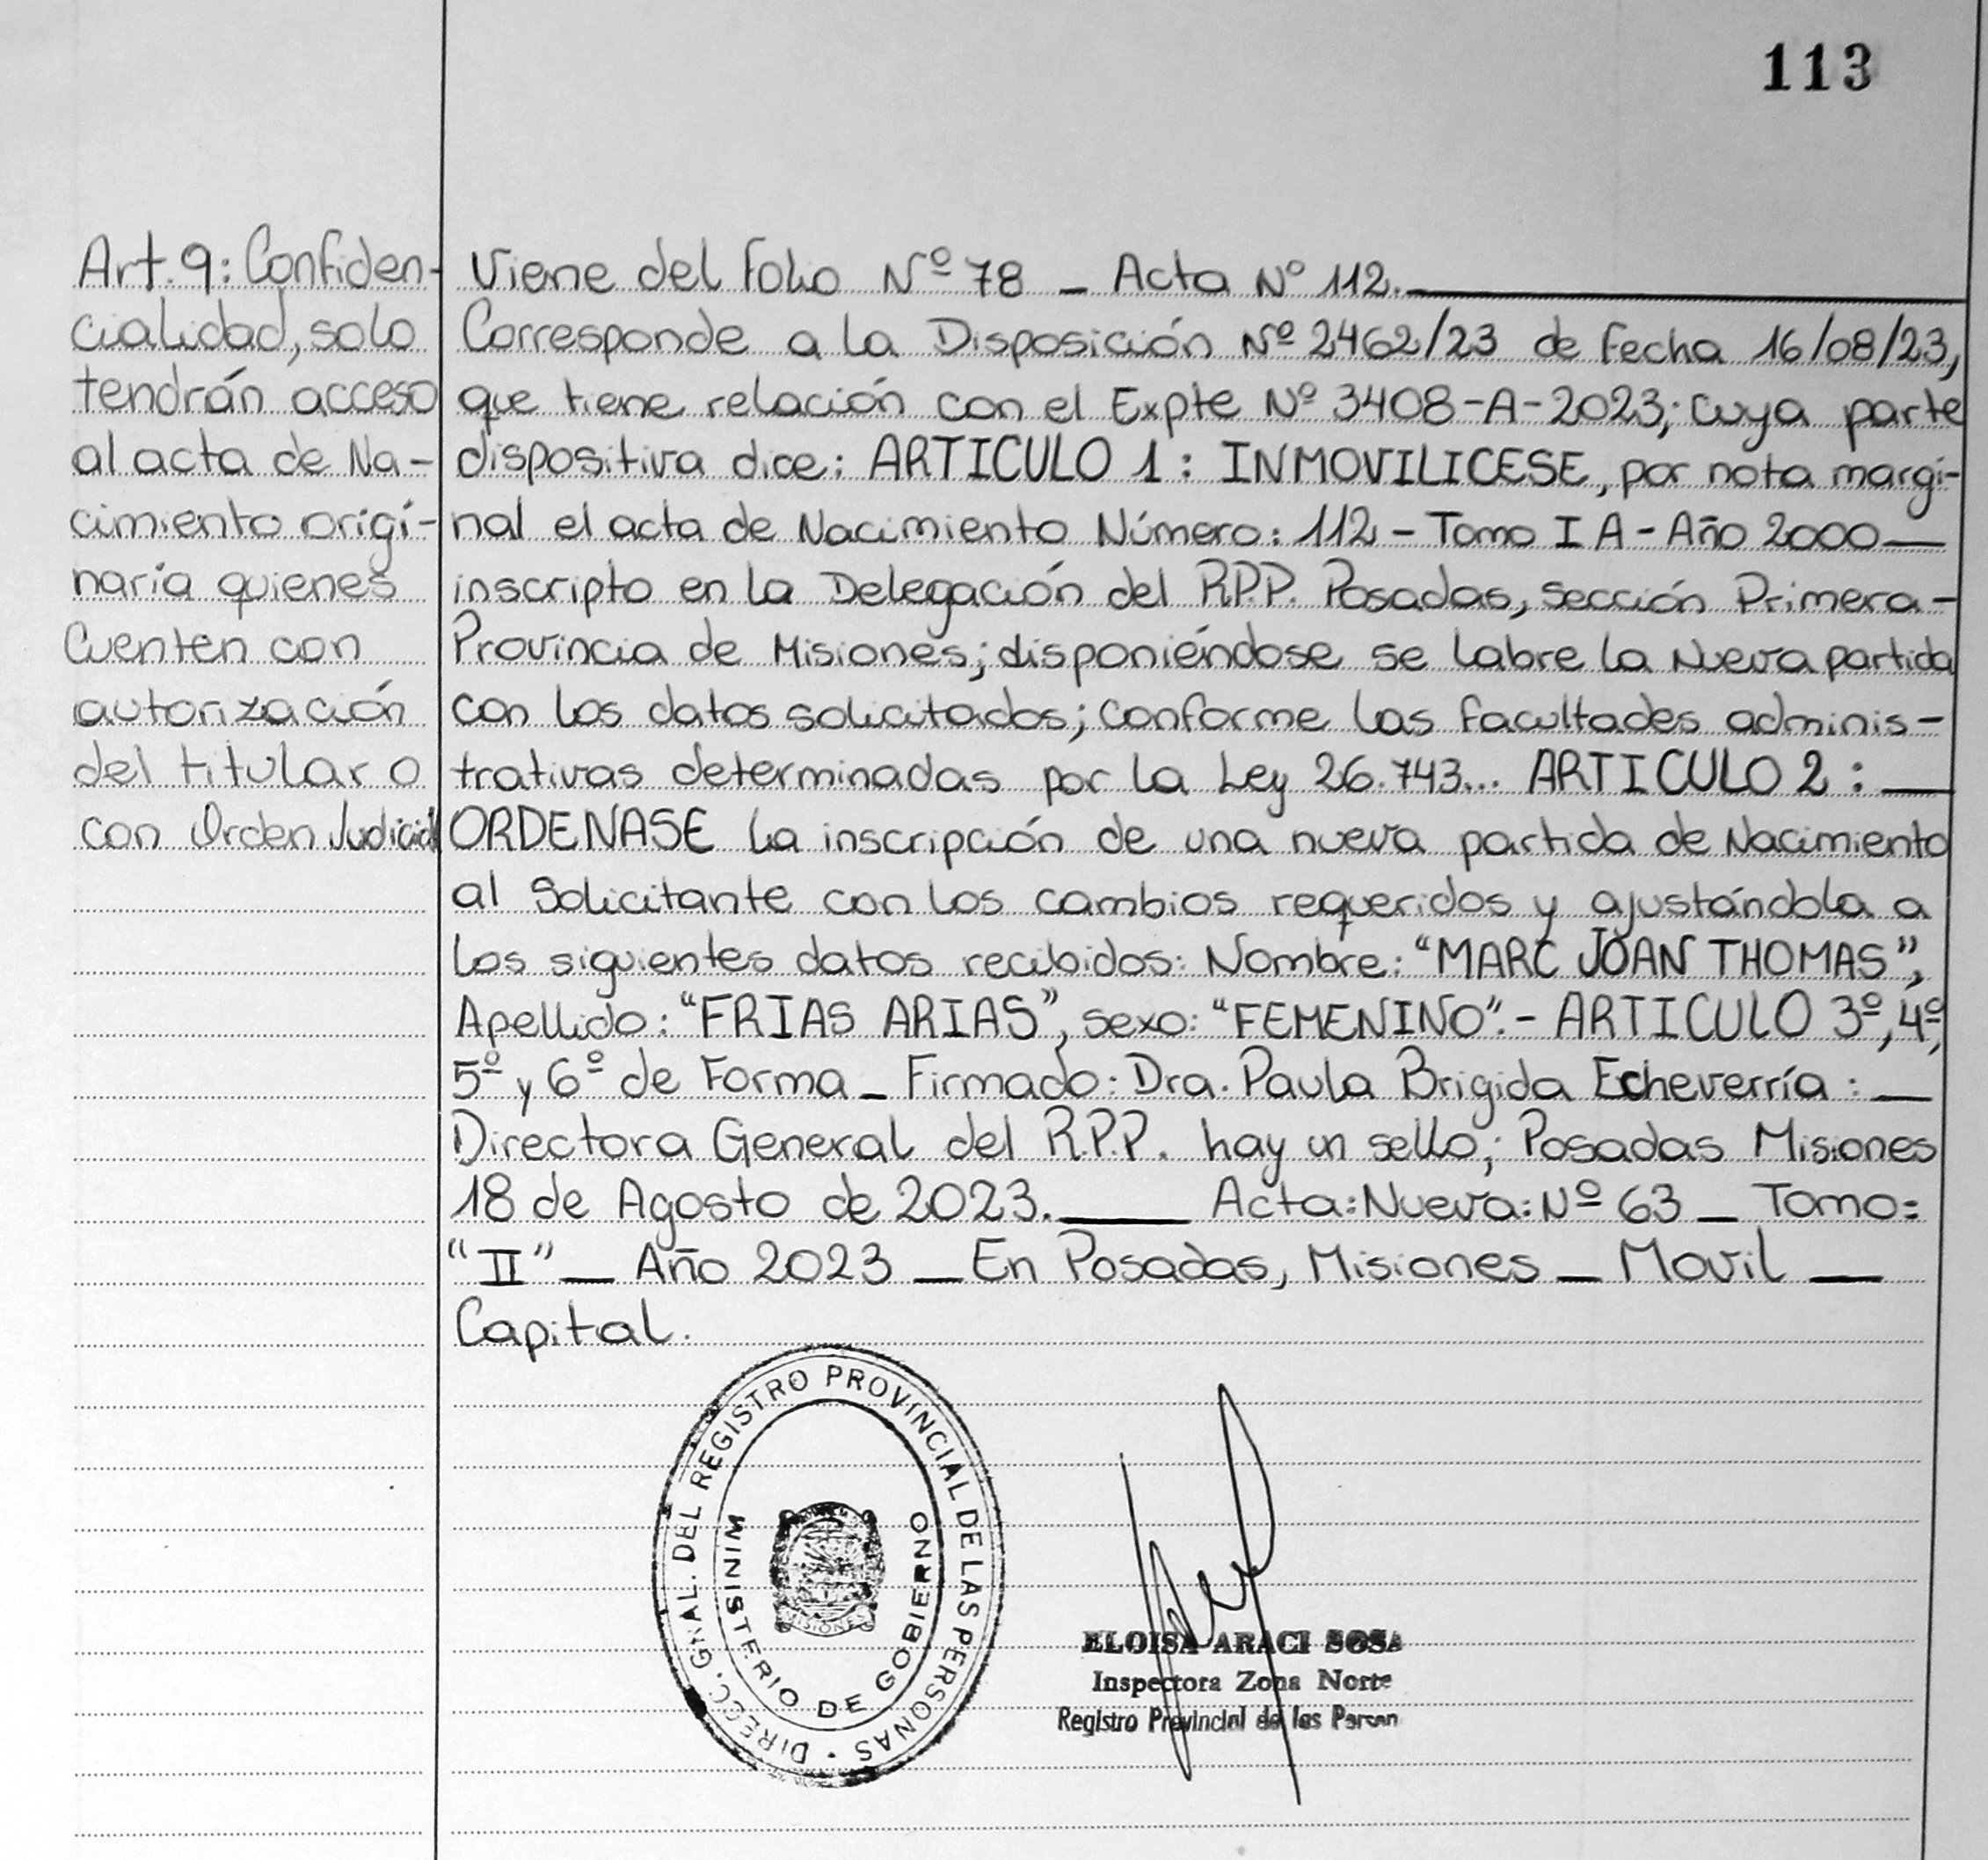 113
Art. 9: Confiden-
cialidad, solo
tendrán acceso
al acta de Na-
cimiento origi-
naria quienes
Cuenten con
autorización
del titular o
con Orden Judicial
Viene del Folio Nº 78 _ Acta Nº 112.
Corresponde a la Disposición Nº 2462/23 de Fecha 16/08/23,
que tiene relación con el Expte Nº 3408-A-2023; cuya parte
dispositiva dice: ARTICULO 1: INMOVILICESE, por nota margi-
nal el acta de Nacimiento Número: 112 - Tomo I A - Año 2000
inscripto en la Delegación del R.P.P. Posadas, sección Primera -
Provincia de Misiones; disponiéndose se labre la Nueva partida
con los datos solicitados; Conforme las facultades adminis-
trativas determinadas por la Ley 26.743... ARTICULO 2:
ORDENASE la inscripción de una nueva partida de Nacimiento
al Solicitante con los cambios requeridos y ajustándola a
los siguientes datos recibidos: Nombre: "MARC JOAN THOMAS",
Apellido: "FRIAS ARIAS", sexo: "FEMENINO".- ARTICULO 3º, 4º,
5º y 6º de Forma _ Firmado: Dra. Paula Brigida Echeverría: _
Directora General del R.P.P. hay un sello; Posadas Misiones
18 de Agosto de 2023. ___ Acta: Nueva: Nº 63 _ Tomo:
"II" _ Año 2023 _ En Posadas, Misiones _ Movil _
Capital.
DIRECC. GRAL. DEL REGISTRO PROVINCIAL DE LAS PERSONAS
MINISTERIO DE GOBIERNO
MISIONES
ELOISA ARACI SOSA
Inspectora Zona Norte
Registro Provincial de las Person